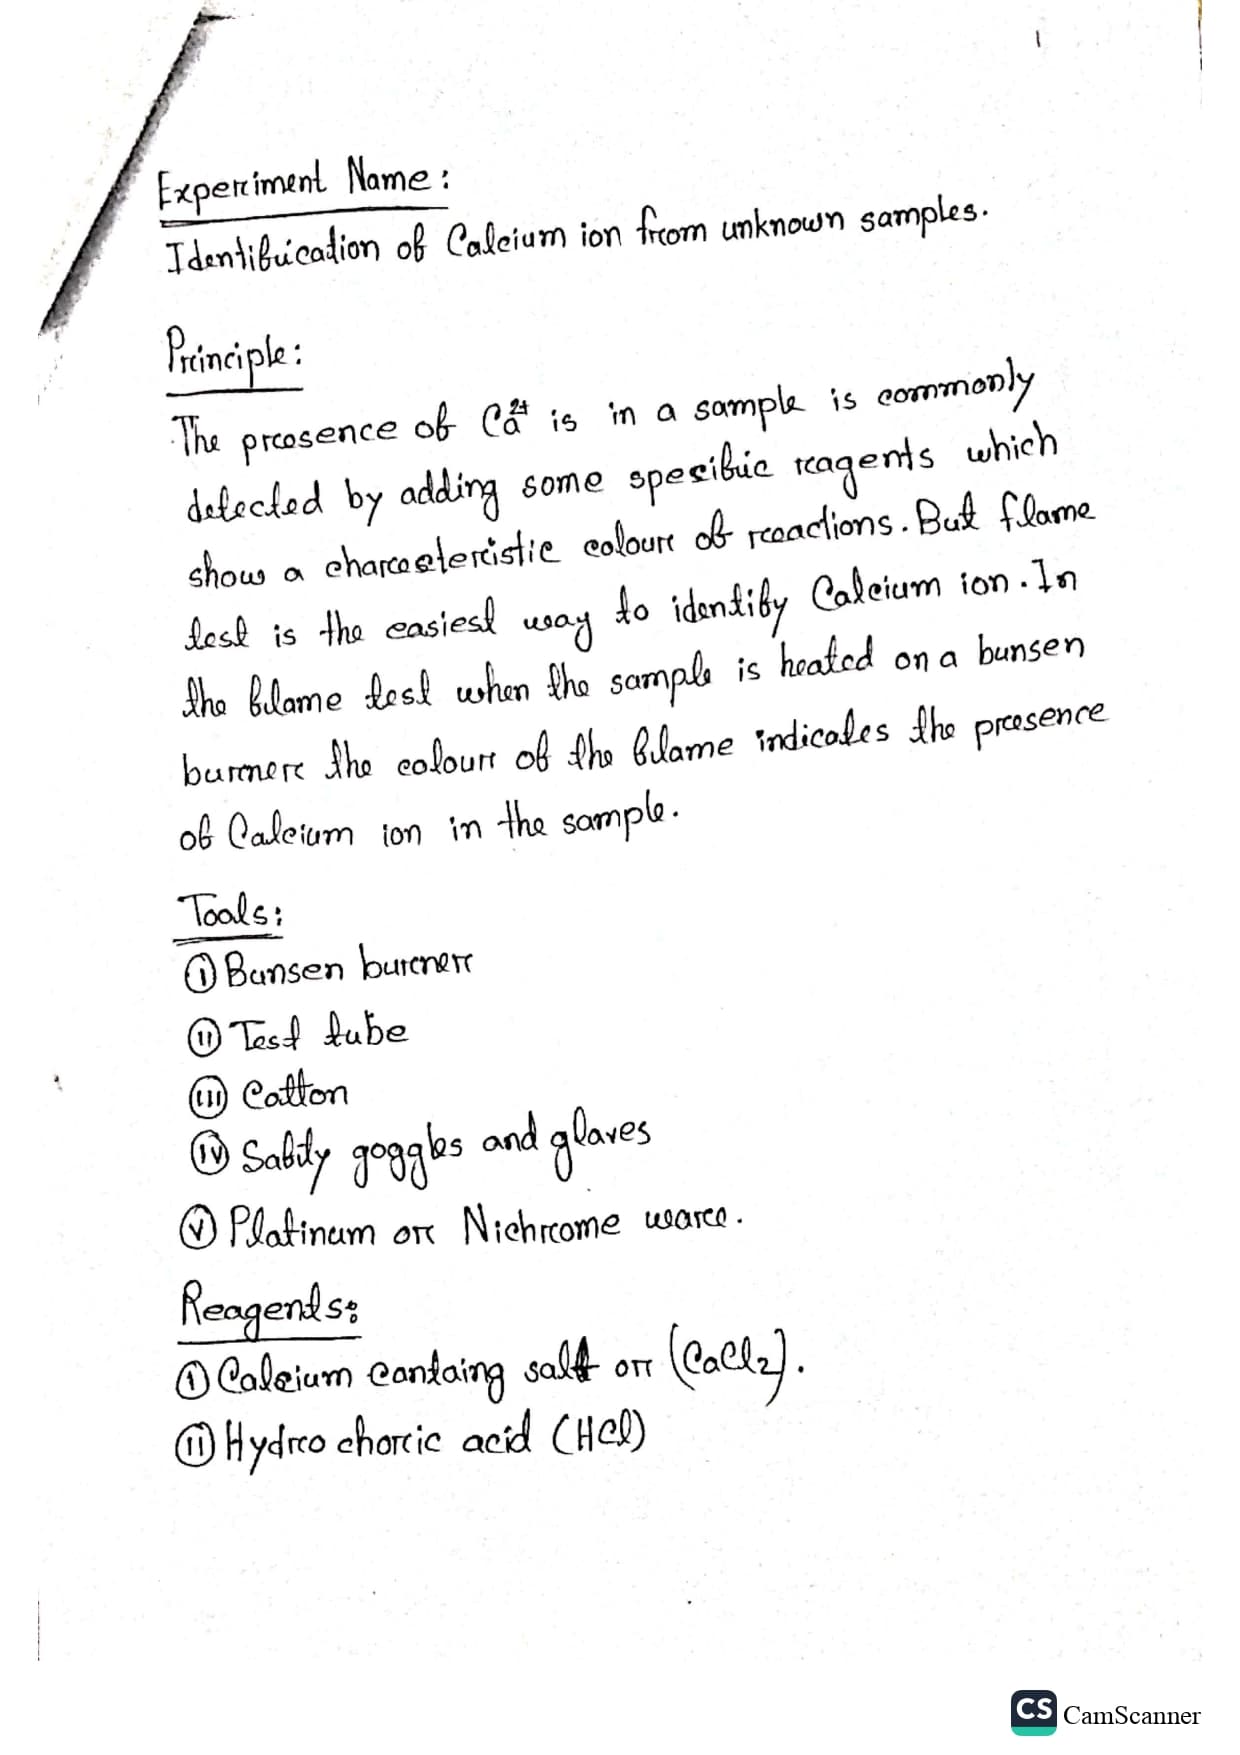 1
Experiment Name:
Identification of Calcium ion from unknown samples.
Principle:
The presence of Ca2+ is in a sample is commonly
detected by adding some specific reagents which
show a characteteristic colour of reactions. But flame
test is the easiest way to identify Calcium ion. In
the flame test when the sample is heated on a bunsen
burner the colour of the flame indicates the presence
of Calcium ion in the sample.
Toals:
i Bunsen burner
ii Test tube
iii Cotton
iv Safity goggles and glaves
v Platinum or Nichrome ware.
Reagents:
i Calcium containg salt or (CaCl2).
ii Hydro choric acid (HCl)
CS CamScanner